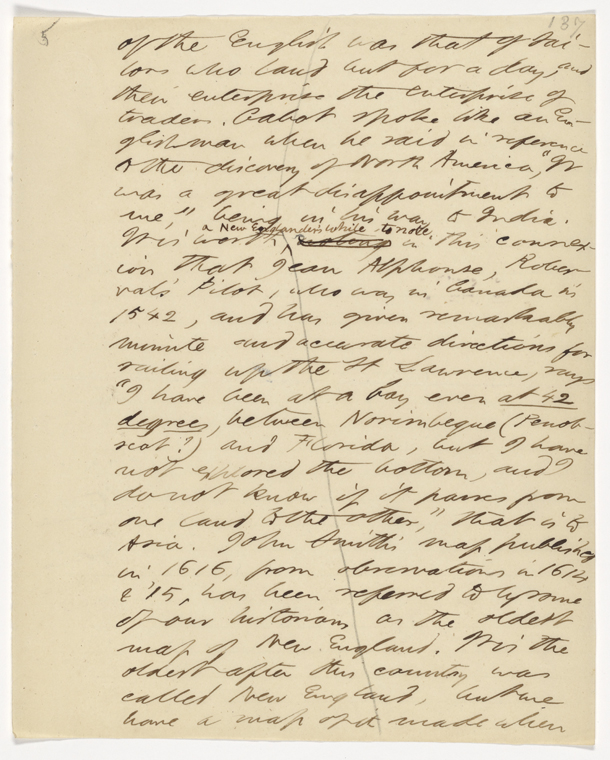 5
137
of the English was that of sai-
lors who land but for a day, and
their enterprise the enterprise of
traders. Cabot spoke like an En-
glishman when he said in reference
to the discovery of North America, "It
was a great disappointment to
me," being in his way to India.
a New Englander's while to note
It is worth in this connex-
ion that Jean Alphonse, Rober-
val's Pilot, who was in Canada in
1542, and has given remarkably
minute and accurate directions for
sailing up the St Lawrence, says
"I have been at a bay even at 42
degrees, between Norimbegue (Penob-
scot?) and Florida, but I have
not explored the bottom, and I
do not know if it passes from
one land to the other," that is to
Asia. John Smith's map published
in 1616, from observations in 1614
& '15, has been referred to by some
of our historians as the oldest
map of New England. It is the
oldest after this country was
called New England, but we
have a map of it made when